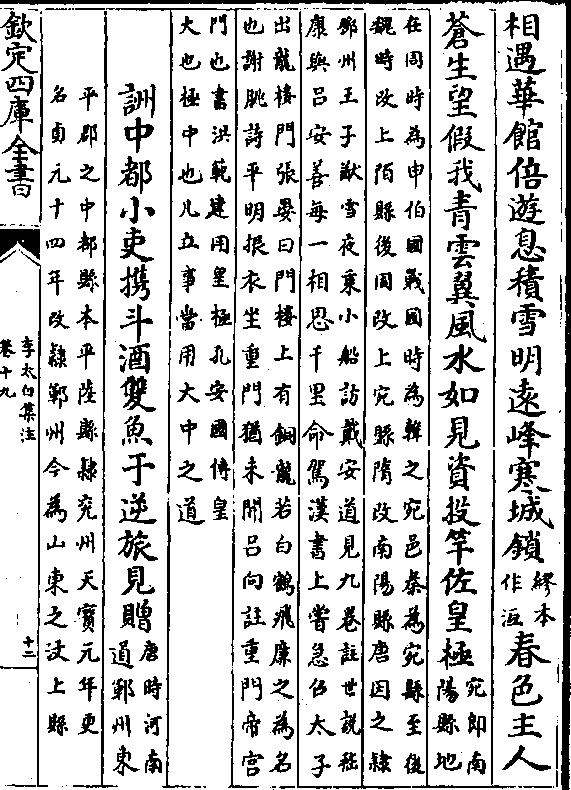 相遇華館倍遊息積雪明遠峰寒城鎖繆本作沍春色主人
蒼生望假我青雲翼風水如見資投竿佐皇極宛即南陽縣地
在周時為申伯國戰國時為韓之宛邑秦為宛縣至後
魏時改上陌縣後周改上宛縣隋改南陽縣唐因之隸
鄧州王子猷雪夜乘小船訪戴安道見九卷註世說嵇
康與吕安善每一相思千里命駕漢書上嘗急召太子
出龍樓門張晏曰門樓上有銅龍若白鶴飛廉之為名
也謝脁詩平明振衣坐重門猶未開吕向註重門帝宫
門也書洪範建用皇極孔安國傳皇
大也極中也凡立事當用大中之道
詶中都小吏携斗酒雙魚于逆旅見贈唐時河南道鄆州東
平郡之中都縣本平陸縣隸兖州天寳元年更
名貞元十四年改隸鄆州今為山東之汶上縣
欽定四庫全書
李太白集注
卷十九
十二